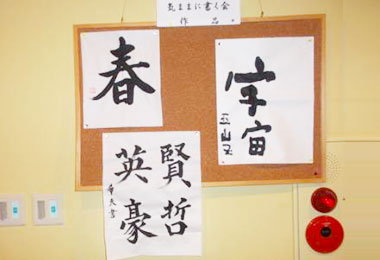 気ままに書く会
作品
春
宇宙
賢哲
英豪